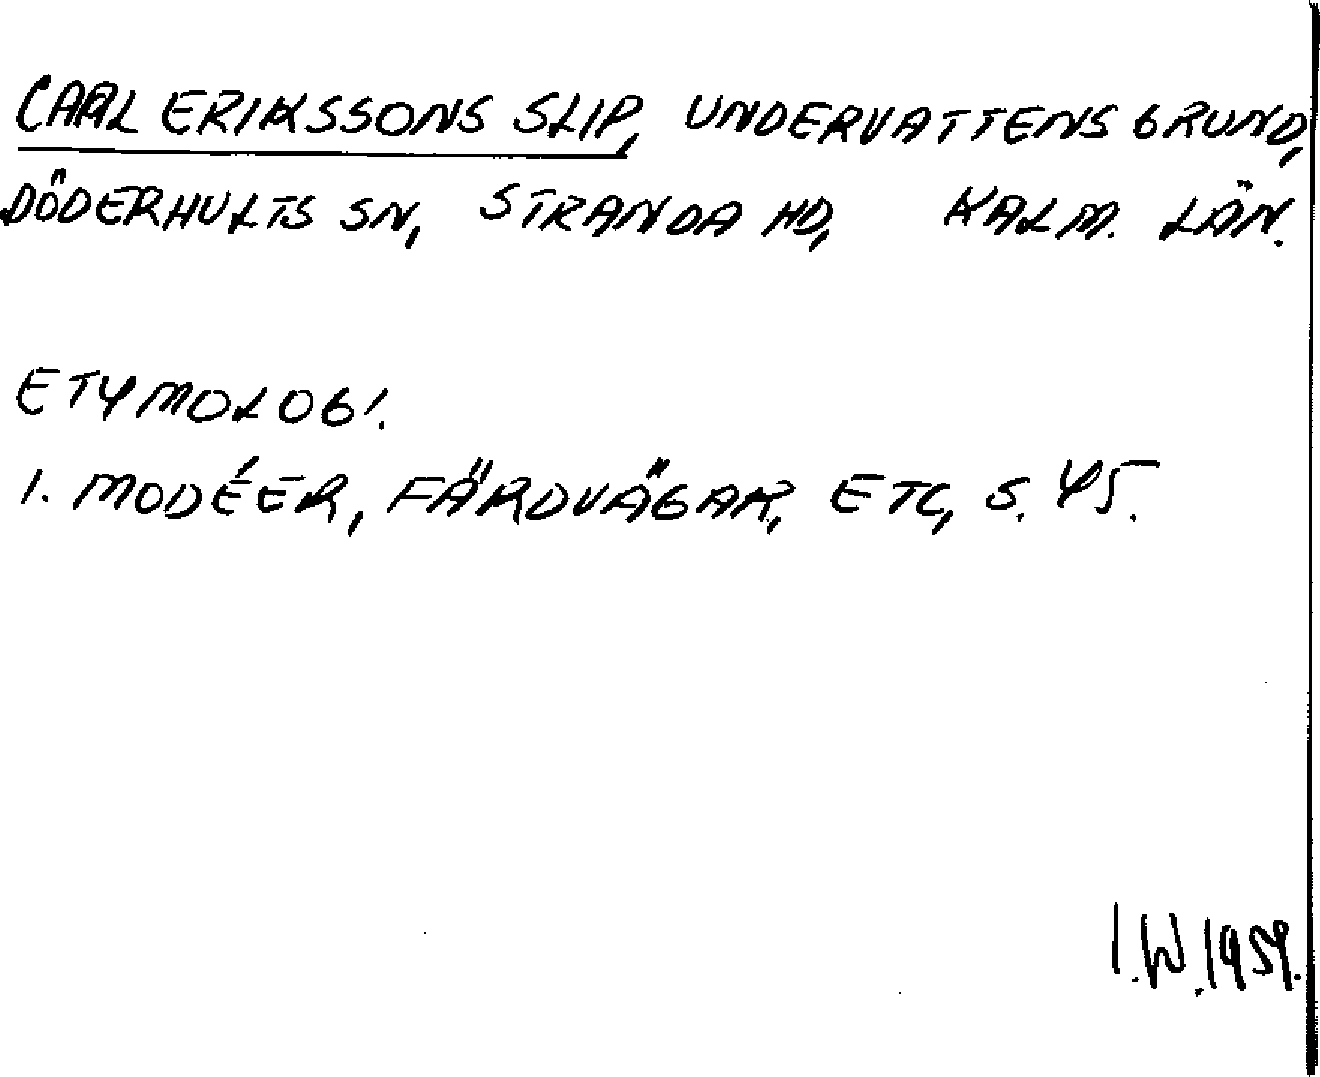 CARL ERIKSSONS SLIP, UNDERVATTENSGRUND,
DÖDERHULTS SN, STRANDA HD, KALM. LÄN.
ETYMOLOGI.
1. MODÉER, FÄRDVÄGAR, ETC, S. 45.
I.W.1959.